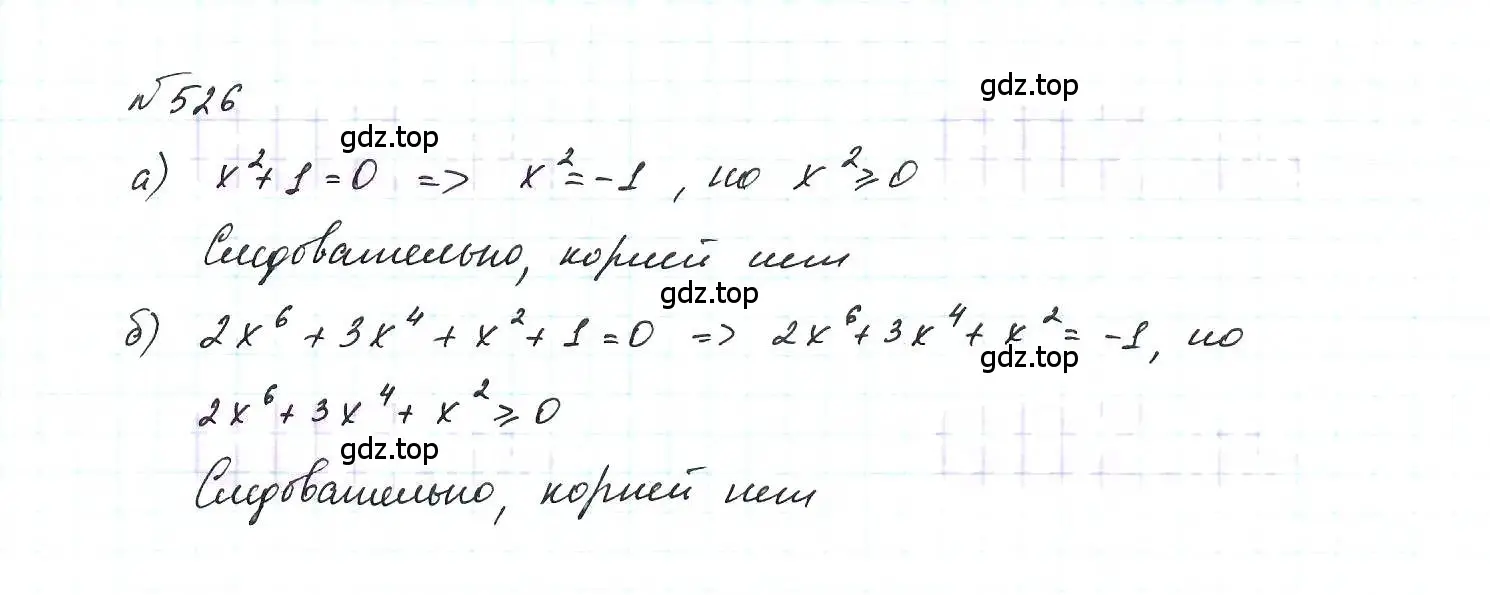 № 526
gdz.top
gdz.top
а) x²+1=0 => x²=-1, но x²⩾0
Следовательно, корней нет
gdz.top
б) 2x⁶+3x⁴+x²+1=0 => 2x⁶+3x⁴+x²=-1, но
gdz.top
2x⁶+3x⁴+x²⩾0
gdz.top
Следовательно, корней нет